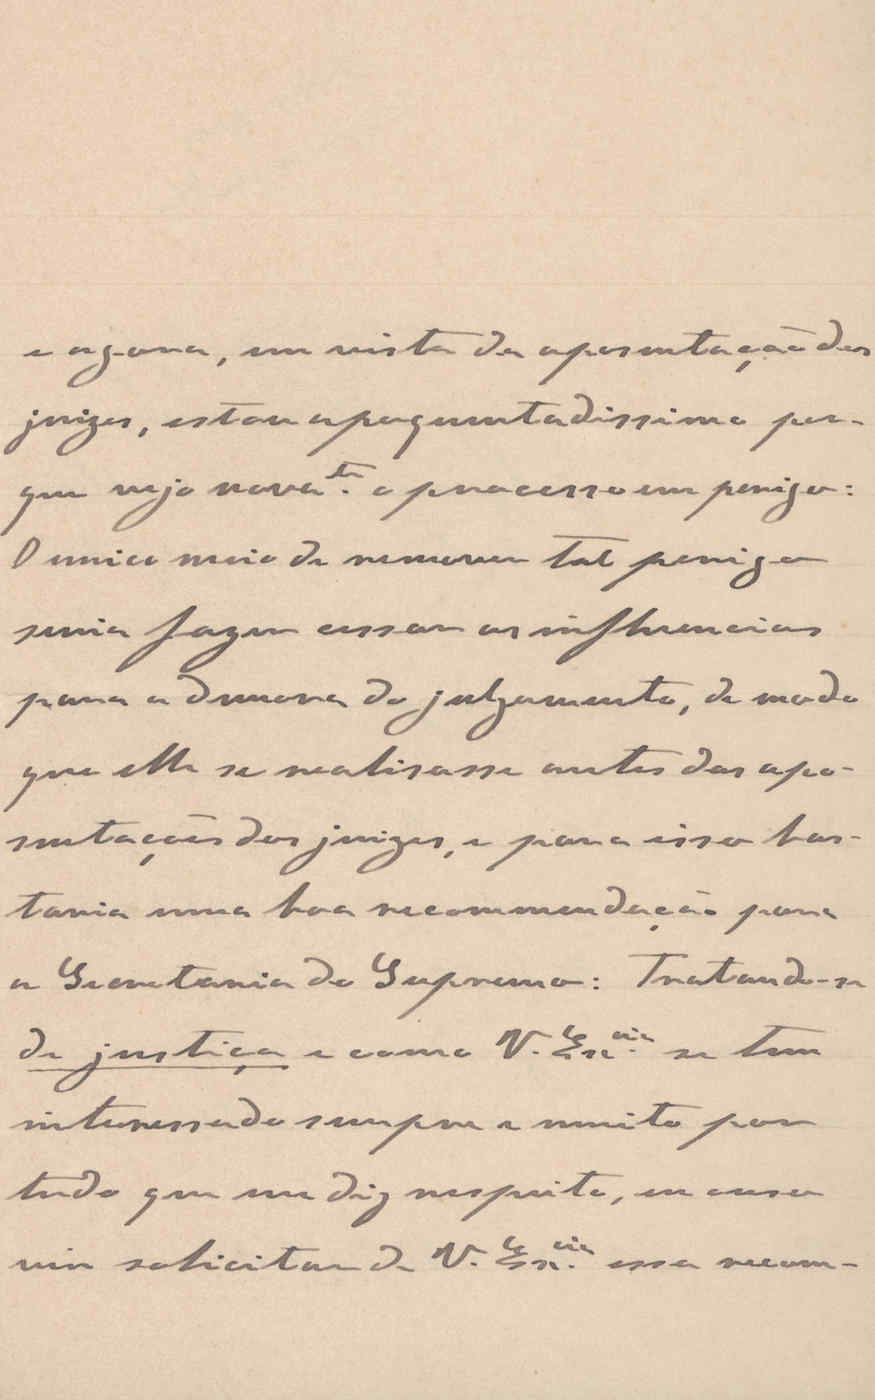 e agora, em vista da aposentação dos
juizes, estou apoquentadissimo por-
que vejo nova.te o processo em perigo:
O unico meio de remover tal perigo
seria fazer cessar as influencias
para a demora do julgamento, de modo
que elle se realisasse antes das apo-
sentações dos juizes, e para isso bas-
taria uma boa recommendação para
a Secretaria do Supremo: Tratando-se
de justiça e como V. Ex.cia se tem
interessado sempre e muito por
tudo que me diz respeito, eu ouso
vir solicitar de V. Ex.cia essa recom-